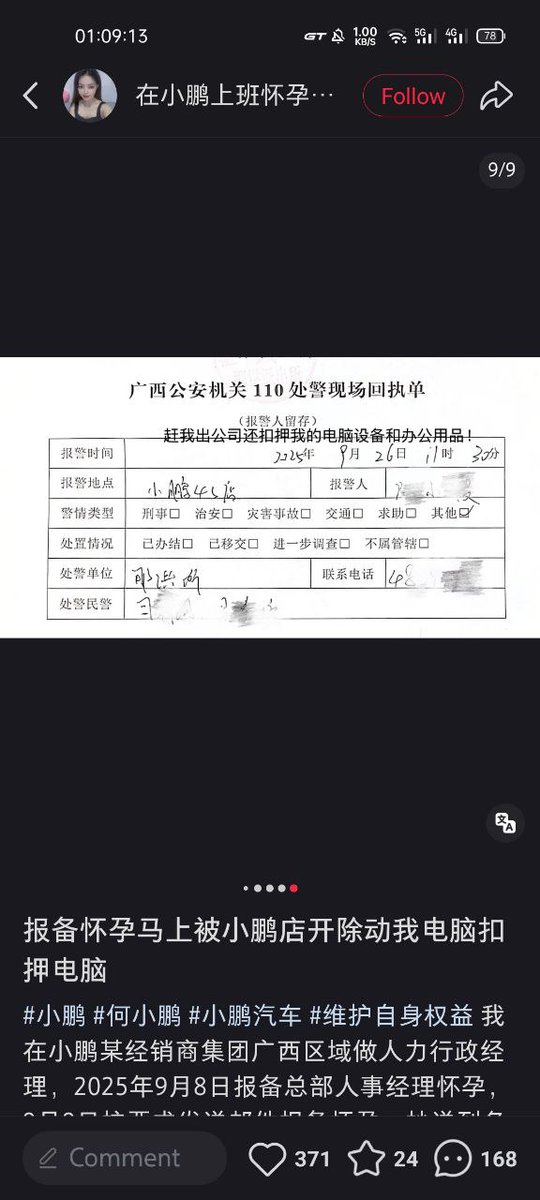 01:09:13
GT 1.00 KB/S 5G 4G 78
在小鹏上班怀孕…
Follow
9/9
广西公安机关 110 处警现场回执单
（报警人留存）
赶我出公司还扣押我的电脑设备和办公用品！
报警时间 2025年 9月 26日 11时 30分
报警地点 小鹏4S店 报警人
警情类型 刑事□ 治安□ 灾害事故□ 交通□ 求助□ 其他☑
处置情况 已办结□ 已移交□ 进一步调查□ 不属管辖□
处警单位 联系电话
处警民警
报备怀孕马上被小鹏店开除动我电脑扣
押电脑
#小鹏 #何小鹏 #小鹏汽车 #维护自身权益 我
在小鹏某经销商集团广西区域做人力行政经
理，2025年9月8日报备总部人事经理怀孕，
Comment
371
24
168